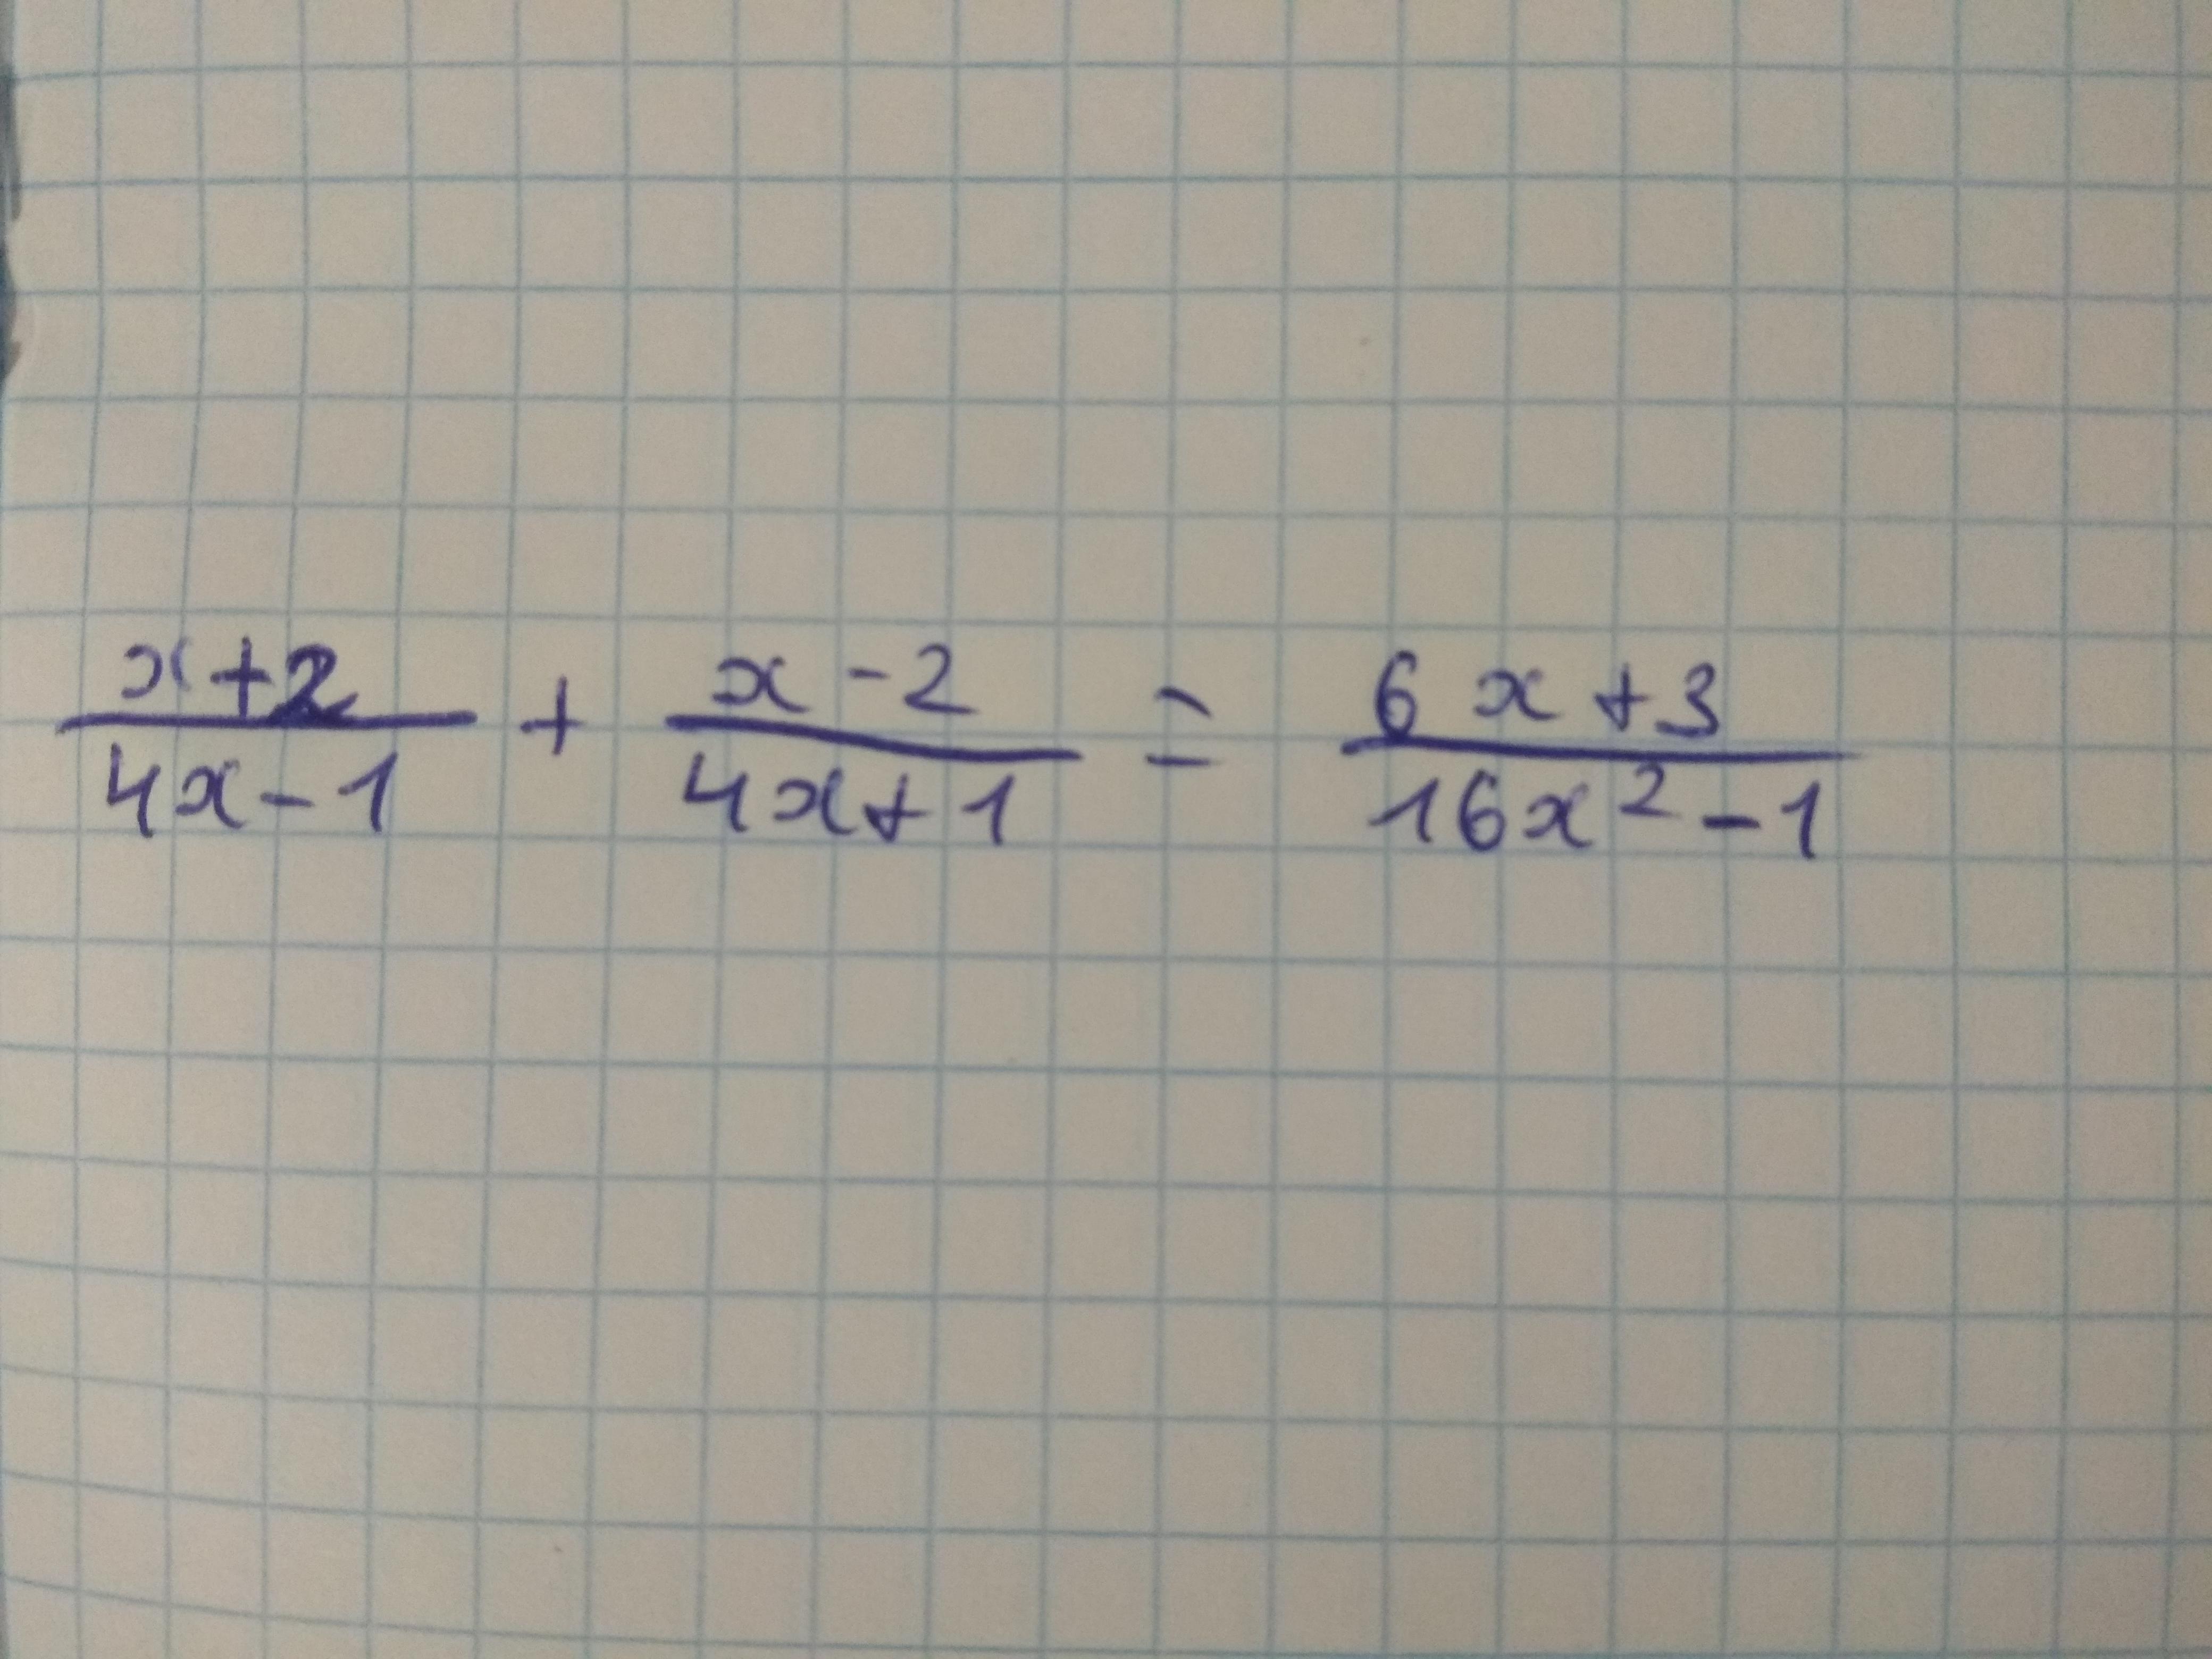 x+2/4x-1 + x-2/4x+1 = 6x+3/16x²-1